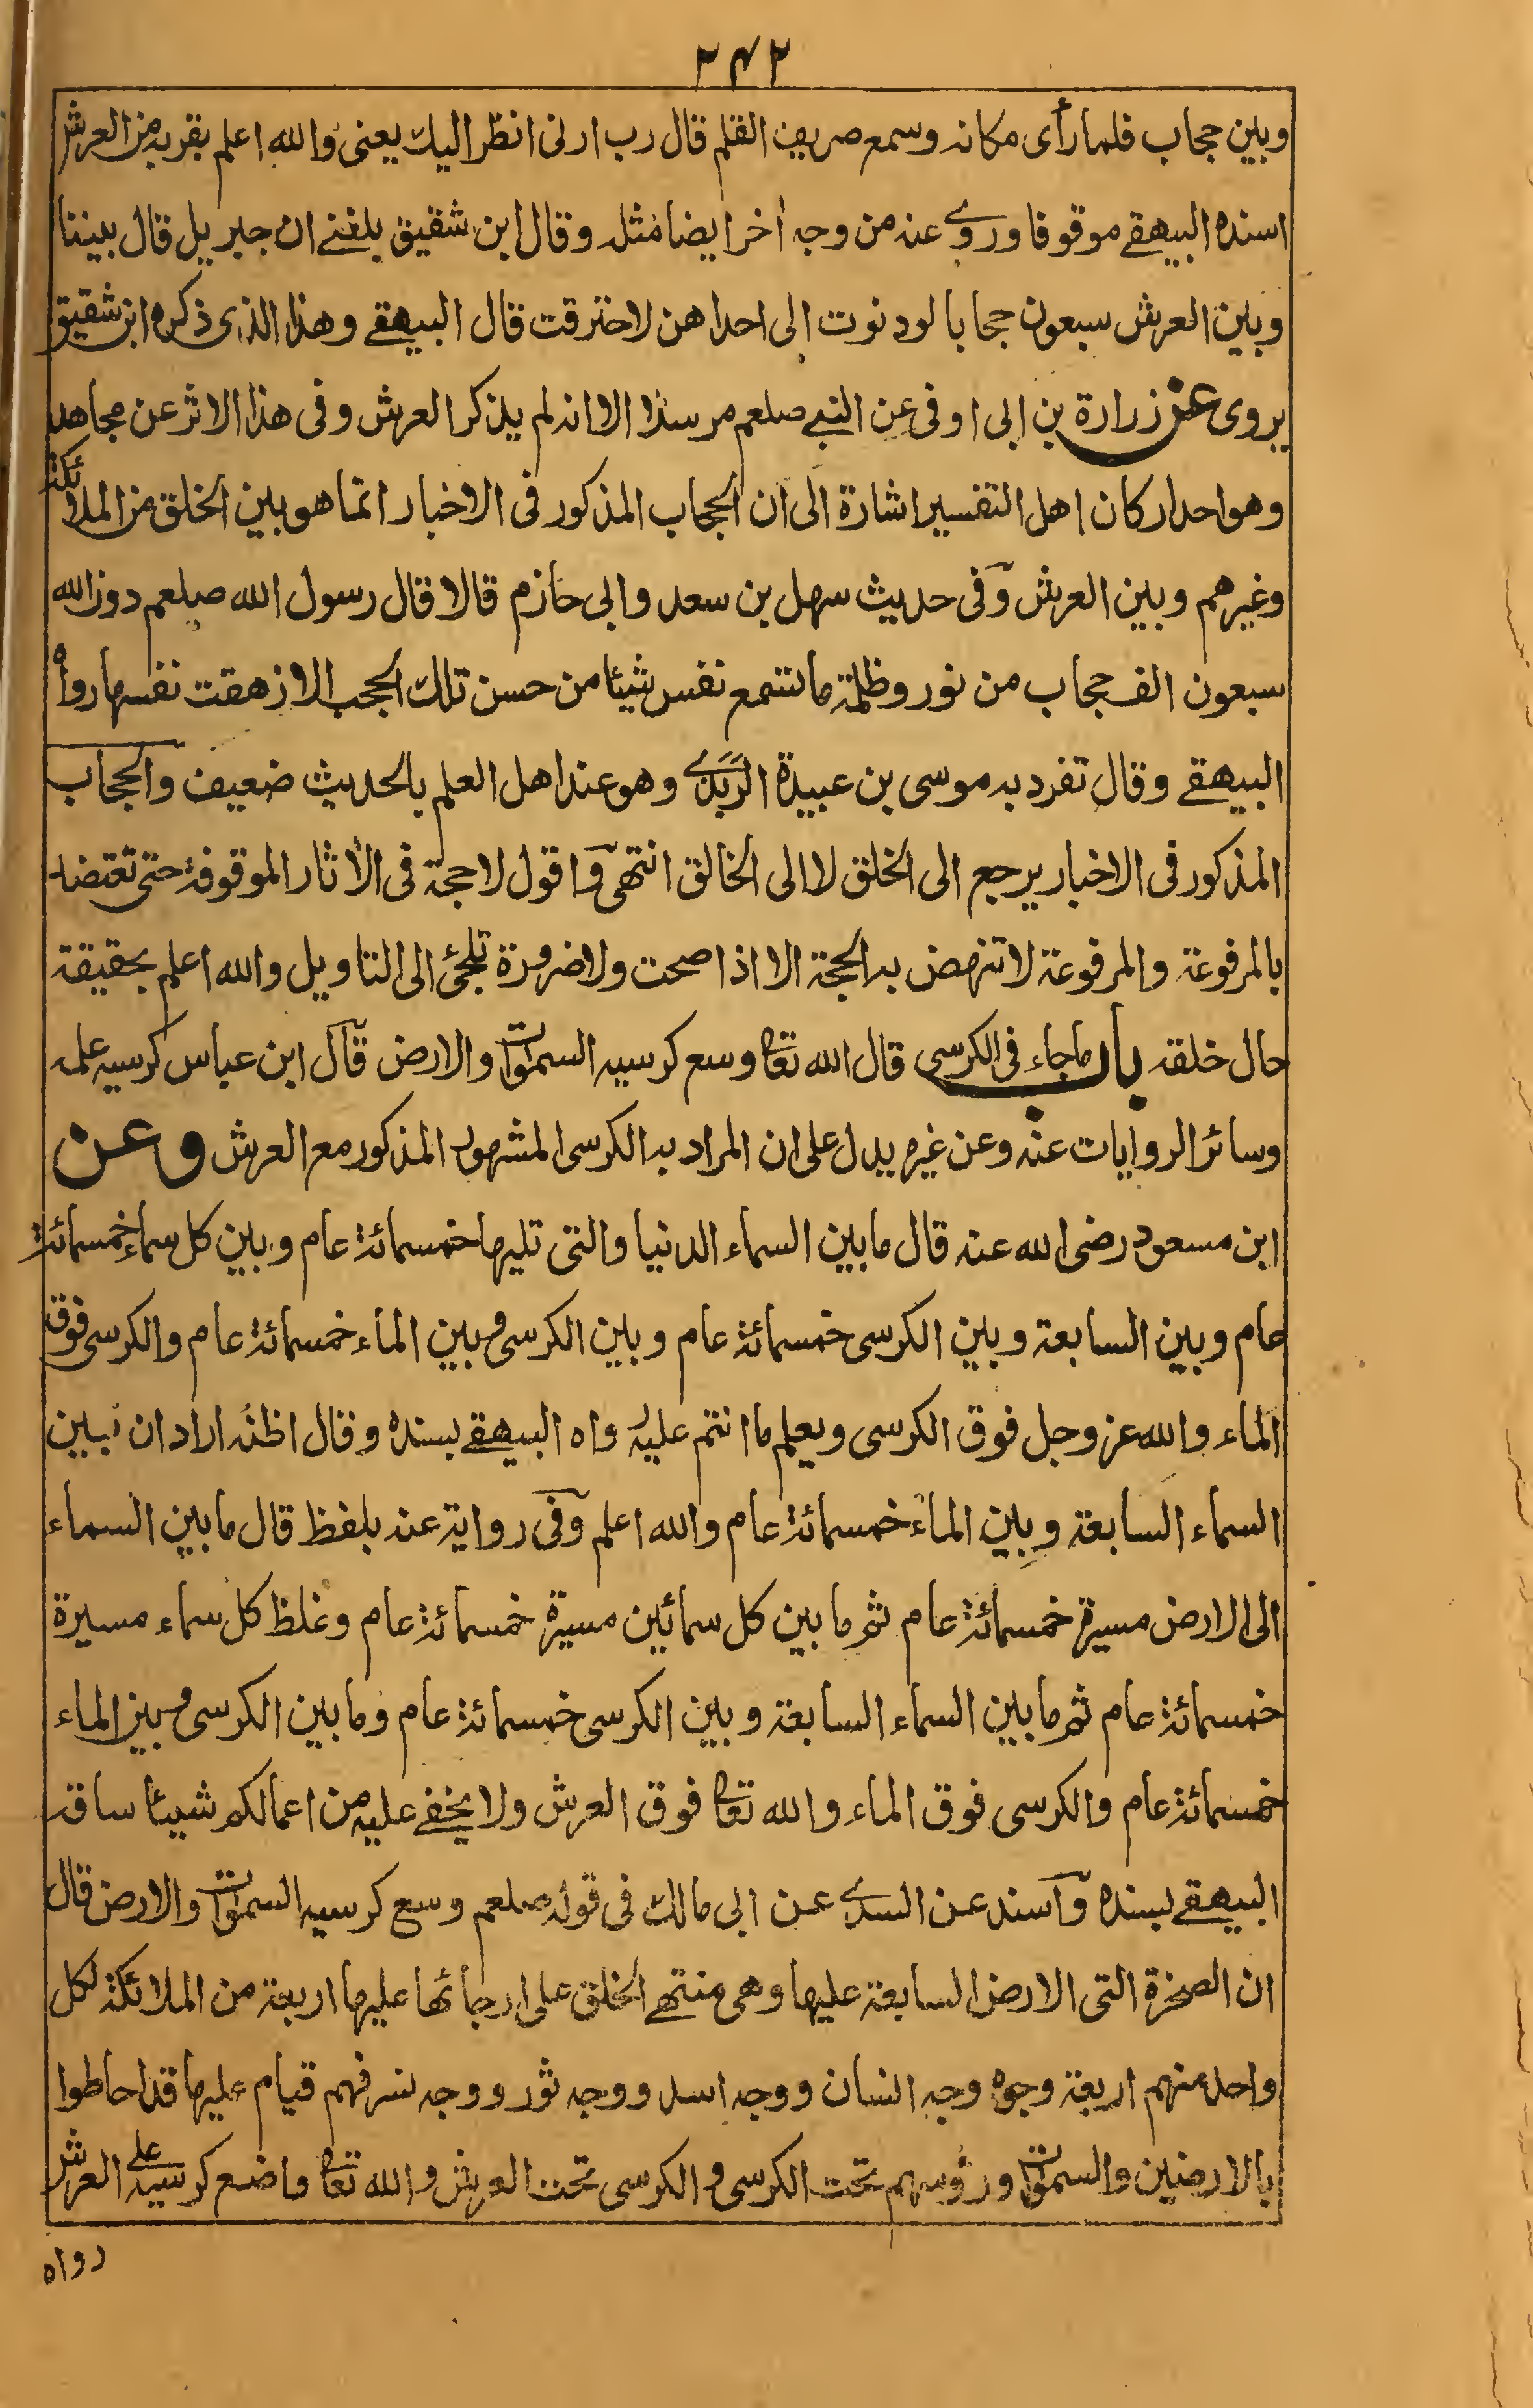 ٢٤٢
وبين حجاب فلما رأى مكانه وسمع صريف القلم قال رب ارنى انظر اليك يعنى والله اعلم بقربه من العرش
اسنده البيهقے موقوفا وروے عنه من وجه اٰخر ايضا مثله وقال ابن شقيق بلغنے ان جبريل قال بيننا
وبين العرش سبعون حجابا لو دنوت الى احداهن لاحترقت قال البيهقے وهذا الذى ذكره ابن شقيق
يروى عن زرارة بن ابى اوفى عن النبے صلعم مرسلا الا انه لم يذكر العرش وفى هذا الاثر عن مجاهد
وهو احد اركان اهل التفسير اشارة الى ان الحجاب المذكور فى الاخبار انما هو بين الخلق من الملائكة
وغيرهم وبين العرش وفى حديث سهل بن سعد وابى حازم قالا قال رسول الله صلعم دون الله
سبعون الف حجاب من نور وظلمة ما تسمع نفس شيئا من حسن تلك الحجب الا زهقت نفسها رواه
البيهقے وقال تفرد به موسى بن عبيدة الربذے وهو عند اهل العلم بالحديث ضعيف والحجاب
المذكور فى الاخبار يرجع الى الخلق لا الى الخالق انتهى واقول لا حجة فى الاٰثار الموقوفة حتى تعتضد
بالمرفوعة والمرفوعة لا تنهض به الحجة الا اذا صحت ولا ضرورة تلجئ الى التاويل والله اعلم بحقيقة
حال خلقه باب ما جاء فى الكرسى قال الله تعا وسع كرسيه السموات والارض قال ابن عباس كرسيه علمه
وسائر الروايات عنه وعن غيره يدل على ان المراد به الكرسى المشهور المذكور مع العرش وعن
ابن مسعود رضى الله عنه قال ما بين السماء الدنيا والتى تليها خمسمائة عام وبين كل سماء خمسمائة
عام وبين السابعة وبين الكرسى خمسمائة عام وبين الكرسى وبين الماء خمسمائة عام والكرسى فوق
الماء والله عز وجل فوق الكرسى ويعلم ما انتم عليه رواه البيهقے بسنده وقال اظنه اراد ان بين
السماء السابعة وبين الماء خمسمائة عام والله اعلم وفى رواية عنه بلفظ قال ما بين السماء
الى الارض مسيرة خمسمائة عام ثم ما بين كل سمائين مسيرة خمسمائة عام وغلظ كل سماء مسيرة
خمسمائة عام ثم ما بين السماء السابعة وبين الكرسى خمسمائة عام وما بين الكرسى وبين الماء
خمسمائة عام والكرسى فوق الماء والله تعا فوق العرش ولا يخفے عليه من اعمالكم شيئا ساقه
البيهقے بسنده واسند عن السدے عن ابى مالك فى قوله صلعم وسع كرسيه السموات والارض قال
ان الصخرة التى الارض السابعة عليها وهى منتهے الخلق على ارجائها عليها اربعة من الملائكة لكل
واحد منهم اربعة وجوه وجه انسان ووجه اسد ووجه ثور ووجه نسر فهم قيام عليها قد احاطوا
بالارضين والسموات ورؤسهم تحت الكرسى والكرسى تحت العرش والله تعا واضع كرسيه على العرش
رواه